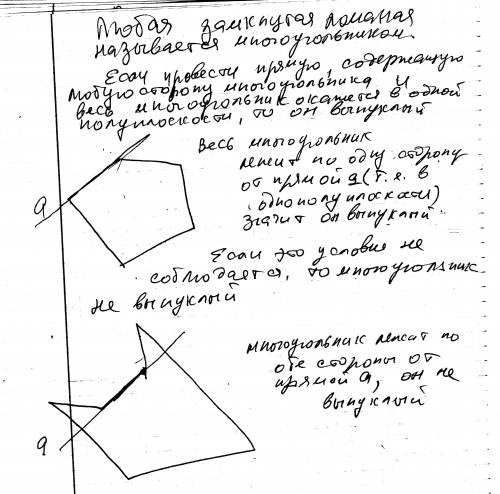 Любая замкнутая ломаная
называется многоугольником.
Если провести прямую, содержащую
любую сторону многоугольника и
весь многоугольник окажется в одной
полуплоскости, то он выпуклый
Весь многоугольник
лежит по одну сторону
от прямой a (т.е. в
одной полуплоскости)
значит он выпуклый.
a
Если это условие не
соблюдается, то многоугольник
не выпуклый
многоугольник лежит по
обе стороны от
прямой a, он не
выпуклый
a